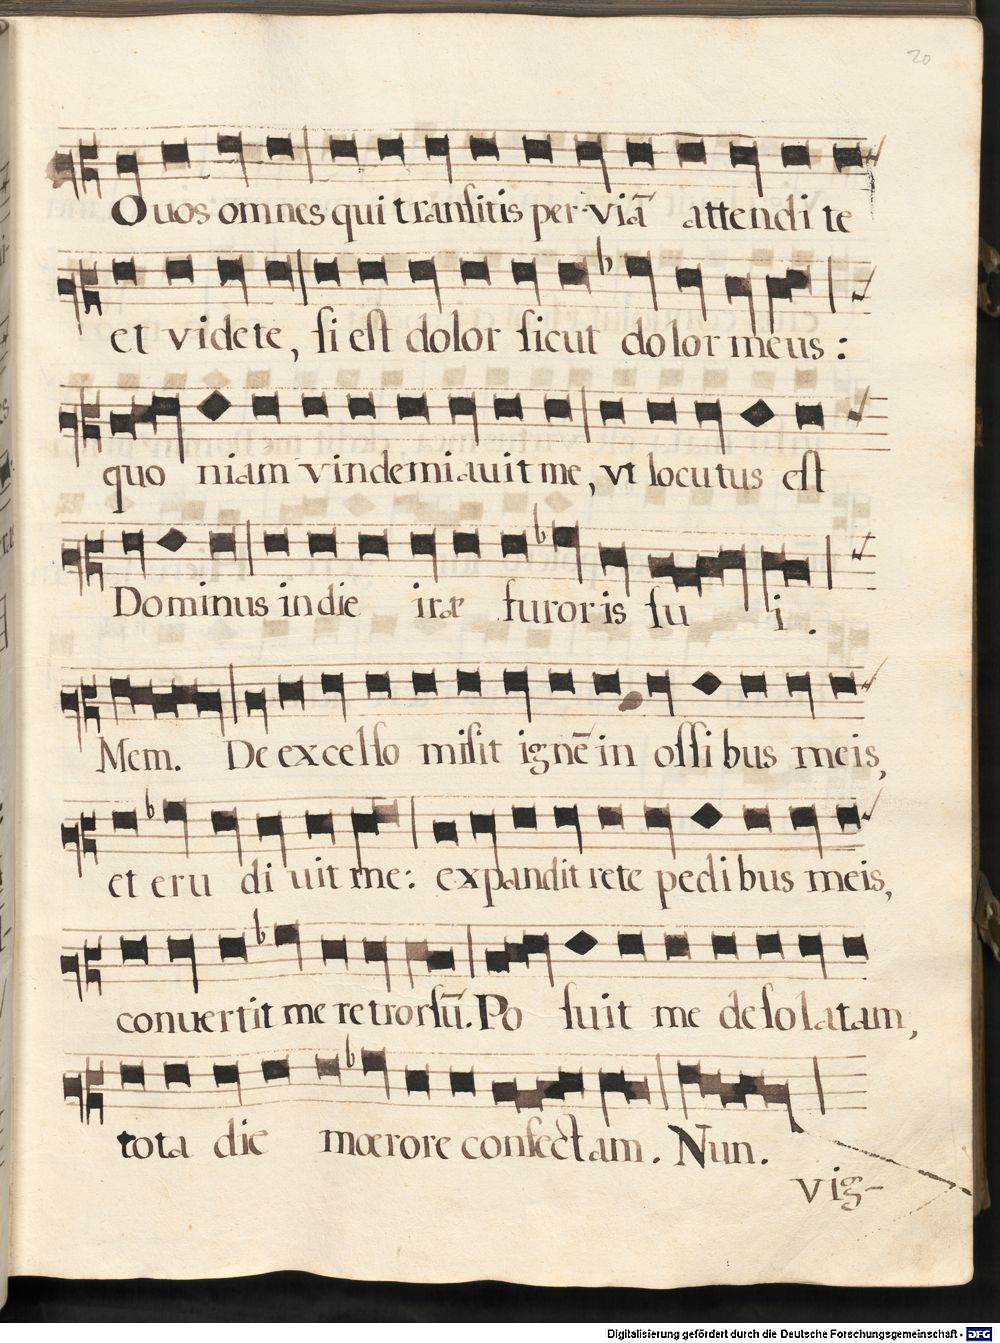 20
O uos omnes qui tranſitis per viā attendi te
et videte, ſi eſt dolor ſicut dolor meus :
quo niam vindemiauit me, vt locutus eſt
Dominus in die iræ furoris ſu i.
Mem. De excelſo miſit ignē in oſſibus meis,
et eru di uit me: expandit rete pedibus meis,
conuertit me retrorſū. Po ſuit me deſolatam,
tota die mœrore confectam. Nun.
vig-
Digitalisierung gefördert durch die Deutsche Forschungsgemeinschaft - DFG